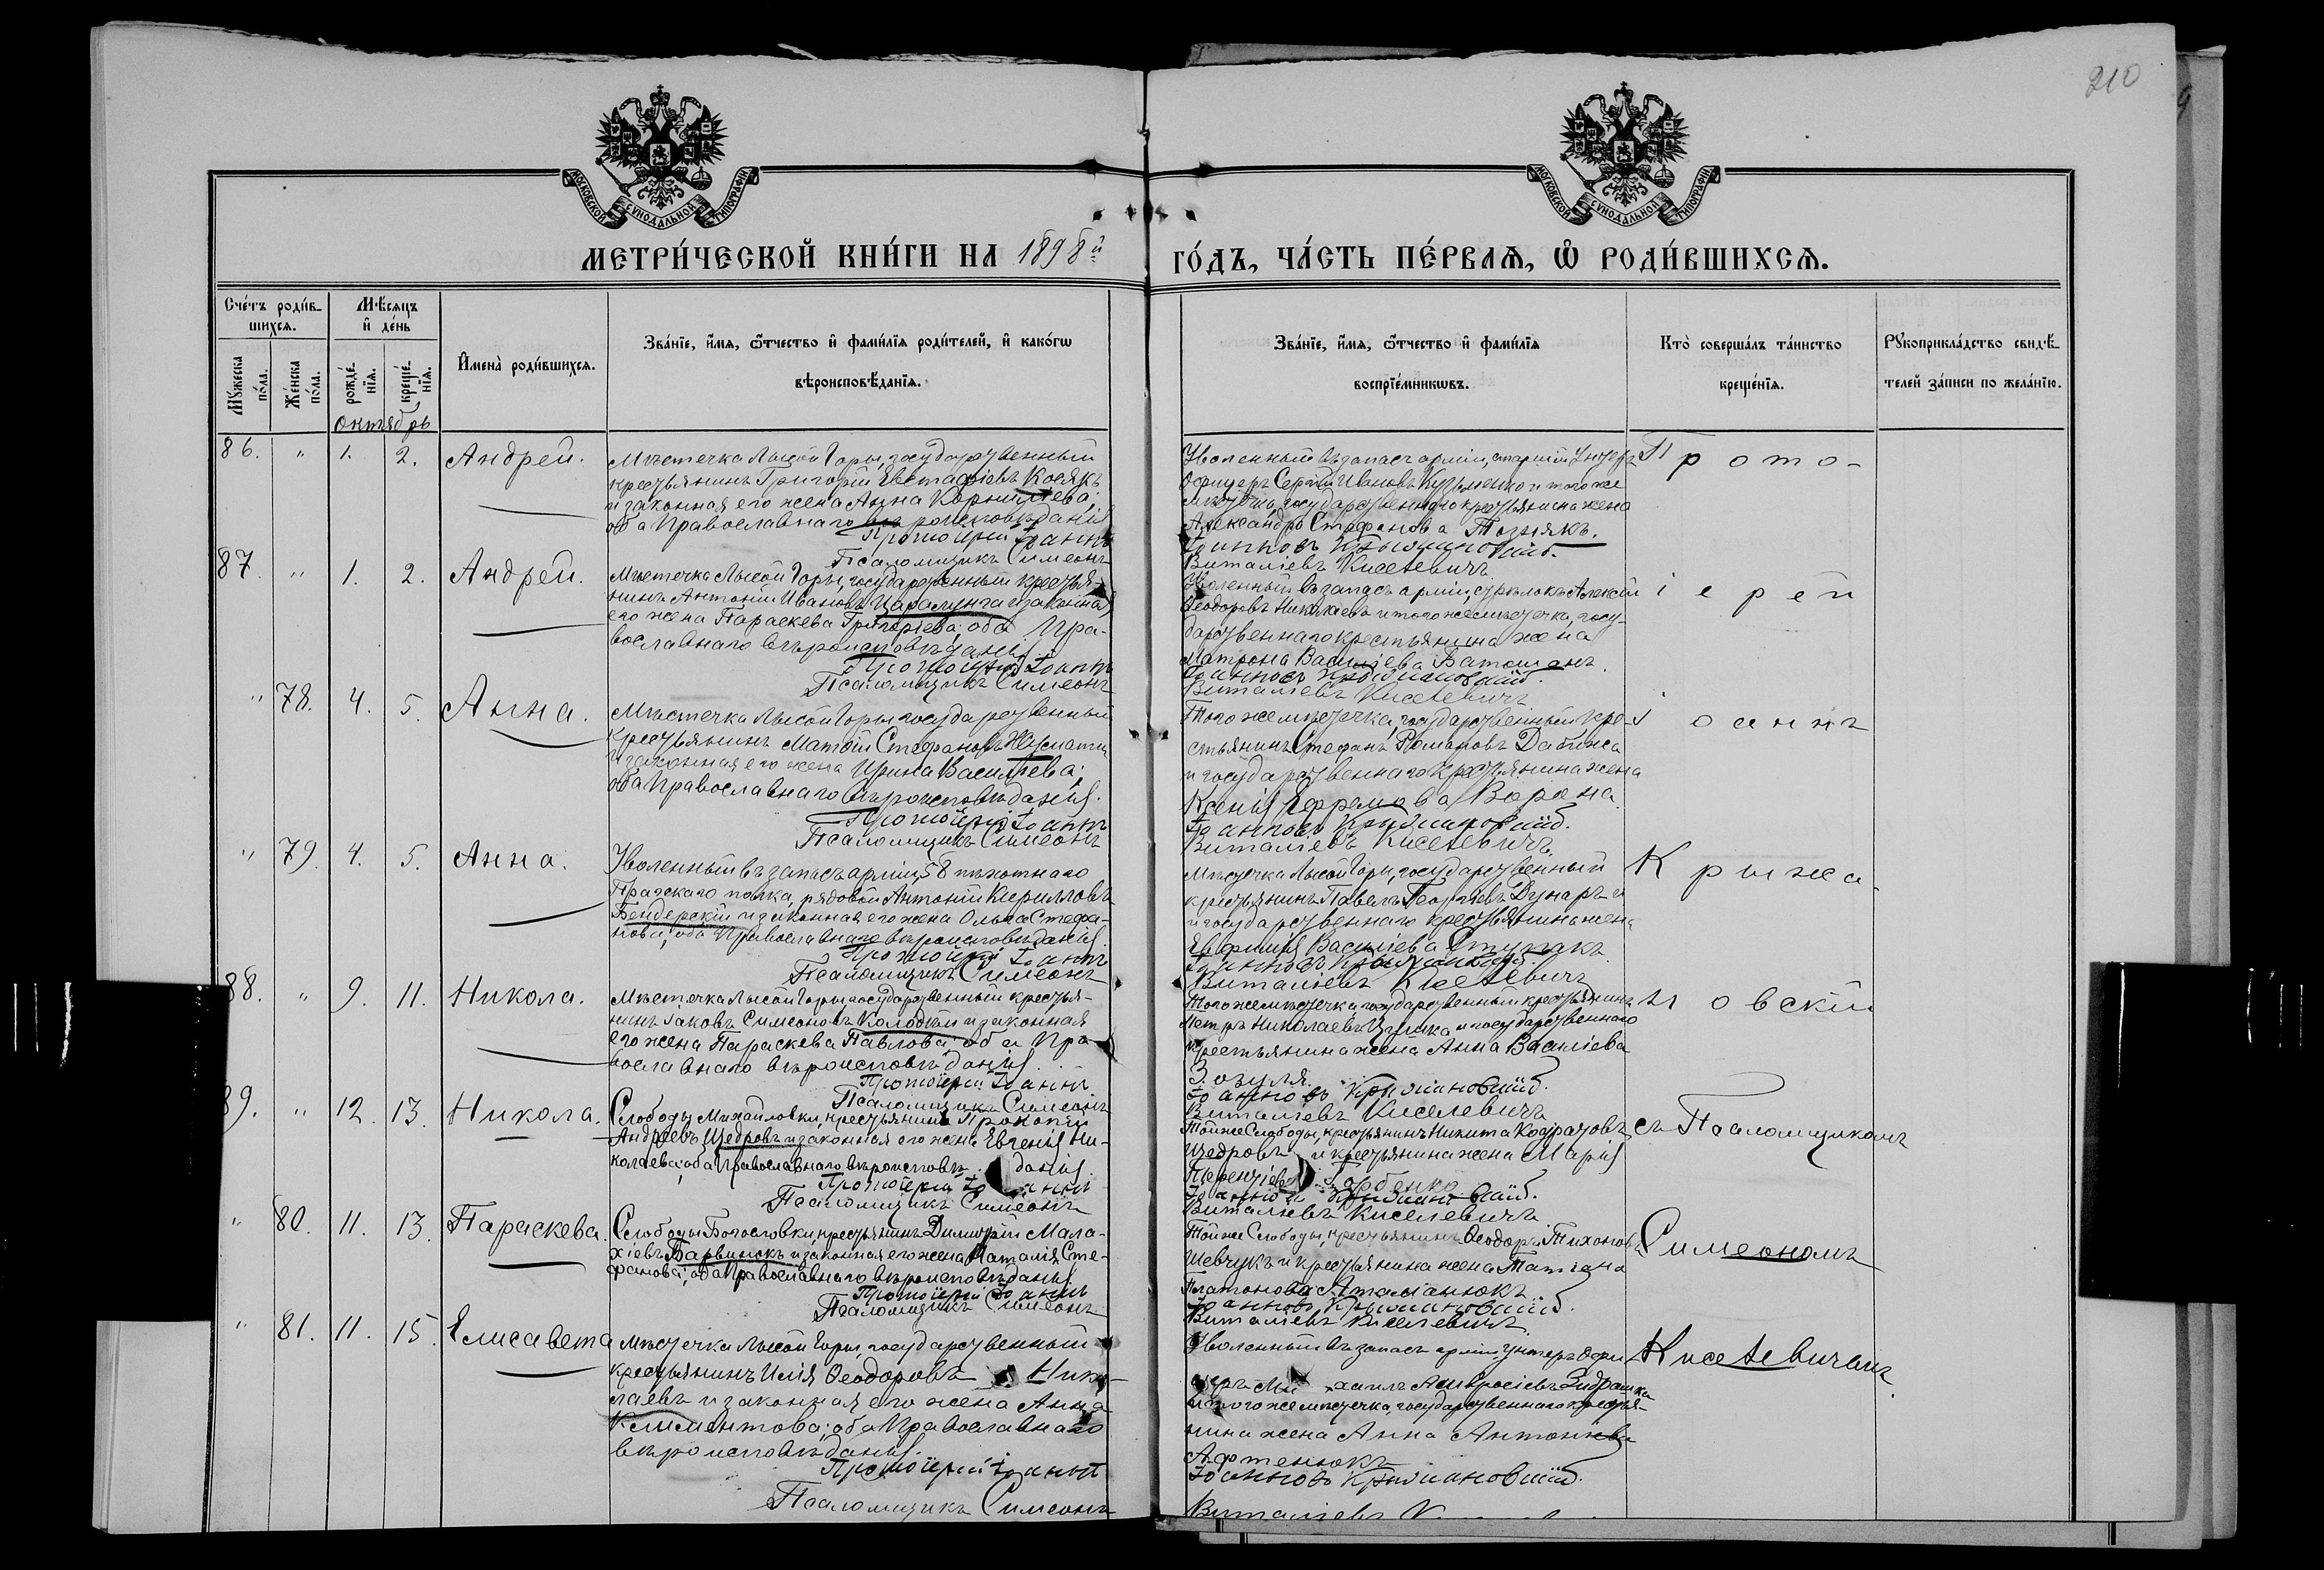 210
МОСКОВСКОЙ СѴНОДАЛЬНОЙ ТИПОГРАФІИ
МОСКОВСКОЙ СѴНОДАЛЬНОЙ ТИПОГРАФІИ
МЕТРИ́ЧЕСКОЙ КНИ́ГИ НА 1898й
ГО́ДЪ, ЧА́СТЬ ПЕ́РВАѦ, Ѽ РОДИ́ВШИХСѦ.
Сче́тъ роди́в-
шихсѧ.
Мꙋ́жеска по́ла.
Же́нска по́ла.
Мѣ́сѧцъ
и҆ де́нь
рожде́-
нїѧ.
креще́-
нїѧ.
Октябрь
И҆мена̀ роди́вшихсѧ.
Зва́нїе, и҆́мѧ, ѻ҆́тчество и҆ фами́лїѧ роди́телей, и҆ како́гѡ
вѣроисповѣ́данїѧ.
Зва́нїе, и҆́мѧ, ѻ҆́тчество и҆ фами́лїѧ
воспрїе́мникѡвъ.
Кто̀ соверша́лъ та́инство
креще́нїѧ.
Рꙋкоприкла́дство свидѣ́-
телей за́писи по жела́нїю.
86. " 1. 2. Андрей.
Мѣстечка Лысой Горы, государственный
крестьянинъ Григорій Евстафіевъ Косякъ
и законная его жена Анна Корнилieва;
оба Православнаго вѣроисповѣданія
Протоіерей Іоаннъ
Псаломщикъ Симеонъ
Уволенный въ запасъ арміи, старшій Унтеръ
Офицеръ Сергій Ивановъ Кузьменко и того же
мѣстечка, государственнаго крестьянина жена
Александра Стефанова Позднякъ.
Іоанновъ Крыжановскій.
Виталіевъ Киселевичъ
Прото-
87. " 1. 2. Андрей.
Мѣстечка Лысой Горы, государственный крестья-
нинъ Антоній Ивановъ Царалунга и законная
его жена Параскева Григоріева; оба Пра-
вославнаго вѣроисповѣданія
Протоіерей Іоаннъ
Псаломщикъ Симеонъ
Уволенный въ запасъ арміи, стрѣлокъ Алексій
Ѳеодоровъ Николаевъ и того же мѣстечка, госу-
дарственнаго крестьянина жена
Матрона Василіева Ботошанъ.
Іоанновъ Крыжановскій.
Виталіевъ Киселевичъ
іерей
" 78. 4. 5. Анна.
Мѣстечка Лысой Горы, государственный
крестьянинъ Матѳій Стефановъ
и законная его жена Ирина Василіева;
оба Православнаго вѣроисповѣданія.
Протоіерей Іоаннъ
Псаломщикъ Симеонъ
Того же мѣстечка, государственный кре-
стьянинъ Стефанъ Романовъ Дабижа
и государственнаго крестьянина жена
Ксенія Ефремова Ворона.
Іоанновъ Крыжановскій.
Виталіевъ Киселевичъ.
Іоаннъ
" 79. 4. 5. Анна.
Уволенный въ запасъ арміи, 58 пѣхотнаго
Пражскаго полка, рядовой Антоній Кирилловъ
Бендерскій и законная его жена Ольга Стефа-
нова; оба Православнаго вѣроисповѣданія.
Протоіерей Іоаннъ
Псаломщикъ Симеонъ
Мѣстечка Лысой Горы, государственный
крестьянинъ Павелъ Георгіевъ Дунаръ
и государственнаго крестьянина жена
Евфимія Василіева Ступакъ
Іоанновъ Крыжановскій.
Виталіевъ Киселевичъ
Крыжа-
88. " 9. 11. Никола.
Мѣстечка Лысой Горы, государственный крестья-
нинъ Іаковъ Симеоновъ Колодѣй и законная
его жена Параскева Павлова; оба Пра-
вославнаго вѣроисповѣданія.
Протоіерей Іоаннъ
Псаломщикъ Симеонъ
Того же мѣстечка государственный крестьянинъ
Петръ Николаевъ и государственнаго
крестьянина жена Анна Василіева
Зозуля.
Іоанновъ Крыжановскій.
Виталіевъ Киселевичъ
новскій
89. " 12. 13. Никола.
Слободы Михайловки, крестьянинъ Прокопій
Андреевъ Щедровъ и законная его жена Евгенія Ни-
колаева; оба Православнаго вѣроисповѣданія.
Протоіерей Іоаннъ
Псаломщикъ Симеонъ
Той же Слободы, крестьянинъ Никита Кодратовъ
Щедровъ и крестьянина жена Марія
Терентіева Горбенко
Іоанновъ Крыжановскій.
Виталіевъ Киселевичъ
съ Псаломщикомъ
" 80. 11. 13. Параскева.
Слободы Богословки, крестьянинъ Димитрій Мала-
хіевъ Барвинскъ и законная его жена Наталія Сте-
фанова; оба Православнаго вѣроисповѣданія.
Протоіерей Іоаннъ
Псаломщикъ Симеонъ
Той же Слободы, крестьянинъ Ѳеодоръ Тихоновъ
Шевчукъ и крестьянина жена Татіана
Платонова Атаманюкъ
Іоанновъ Крыжановскій.
Виталіевъ Киселевичъ.
Симеономъ
" 81. 11. 15. Елисавета
Мѣстечка Лысой Горы, государственный
крестьянинъ Илія Ѳеодоровъ Нико-
лаевъ и законная его жена Анна
Климентова; оба Православнаго
вѣроисповѣданія.
Протоіерей Іоаннъ
Псаломщикъ Симеонъ
Уволенный въ запасъ арміи Унтеръ Офи-
церъ Михаилъ Амвросіевъ
и того же мѣстечка, государственнаго крестья-
нина жена Анна Антоніева
Афтенюкъ
Іоанновъ Крыжановскій.
Виталіевъ
Киселевичемъ